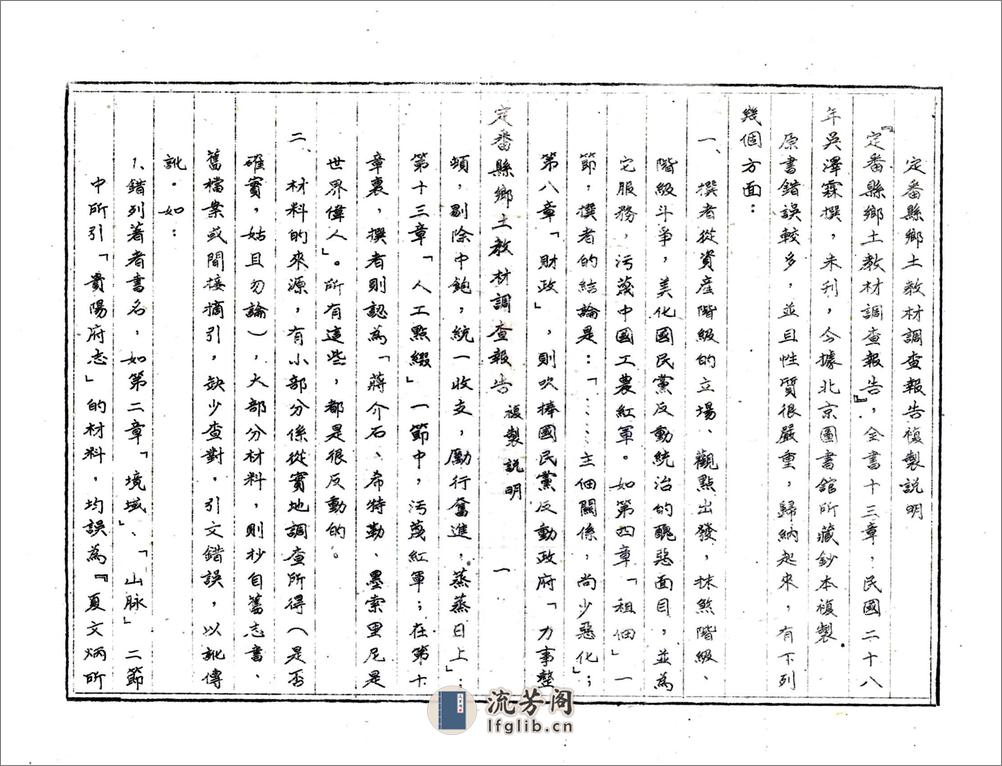 定番縣鄉土教材調查報告複製説明
『定番縣鄉土教材調查報告』，全書十三章，民國二十八
年吳澤霖撰，未刊，今據北京圖書館所藏鈔本複製。
原書錯誤較多，並且性質很嚴重，歸納起來，有下列
幾個方面：
一、撰者從資産階級的立場、觀點出發，抹煞階級、
階級斗爭，美化國民黨反動統治的醜惡面目，並為
它服務，污蔑中國工農紅軍。如第四章「租佃」一
節，撰者的結論是：「……主佃關係，尚少惡化」；
第八章「財政」，則吹棒國民黨反動政府「力事整
定番縣鄉土教材調查報告 複製説明 一
頓，剔除中飽，統一收支，勵行奮進，蒸蒸日上」；
第十三章「人工點綴」一節中，污蔑紅軍；在第十
章裏，撰者則認為「蔣介石、希特勒、墨索里尼是
世界偉人」。所有這些，都是很反動的。
二、材料的來源，有小部分係從實地調查所得（是否
確實，姑且勿論），大部分材料，則抄自舊志書、
舊檔案或間接摘引，缺少查對，引文錯誤，以訛傳
訛。如：
1、錯列著者書名，如第二章「境域」、「山脉」二節
中所引「貴陽府志」的材料，均誤為『夏文炳所
流芳阁
lfglib.cn